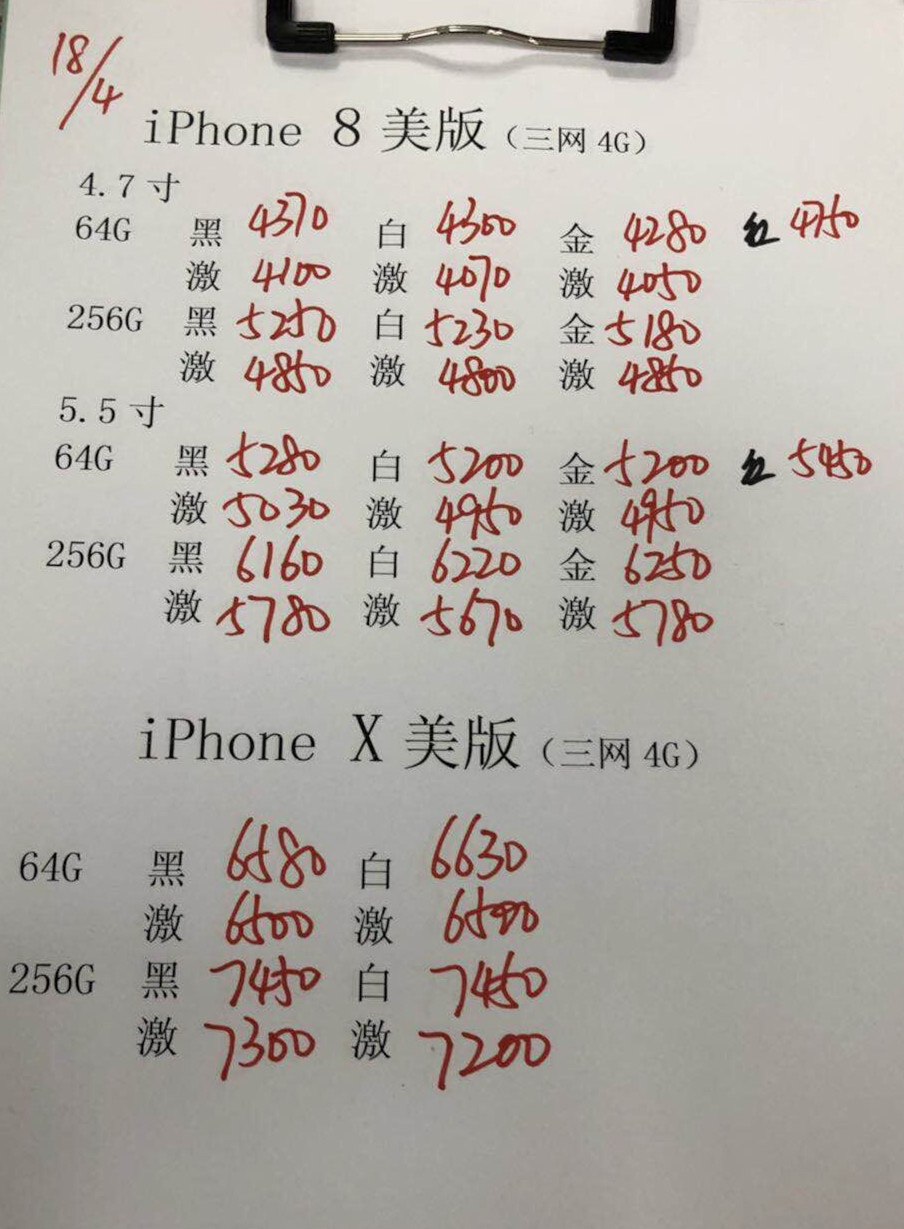 18/4
iPhone 8 美版（三网 4G）
4.7 寸
64G 黑 4370 白 4300 金 4280 红 4750
激 4100 激 4070 激 4050
256G 黑 5250 白 5230 金 5180
激 4850 激 4800 激 4850
5.5 寸
64G 黑 5280 白 5200 金 5200 红 5450
激 5030 激 4950 激 4950
256G 黑 6160 白 6220 金 6250
激 5780 激 5670 激 5780
iPhone X 美版（三网 4G）
64G 黑 6580 白 6630
激 6500 激 6500
256G 黑 7450 白 7450
激 7300 激 7200